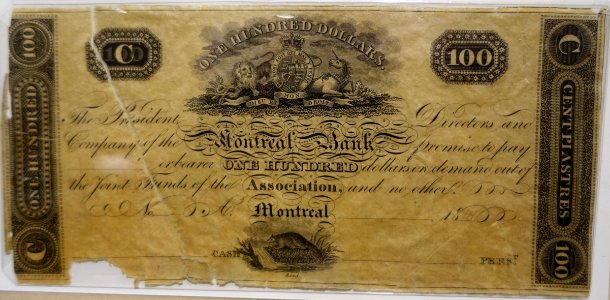 100
ONE HUNDRED
C
100
ONE HUNDRED DOLLARS
100
C
CENT PIASTRES
100
The President, Directors and
Company of the Montreal Bank promise to pay
or bearer ONE HUNDRED dollars on demand out of
the Joint Funds of the Association, and no other.
No. Montreal 18
CASHr PREST